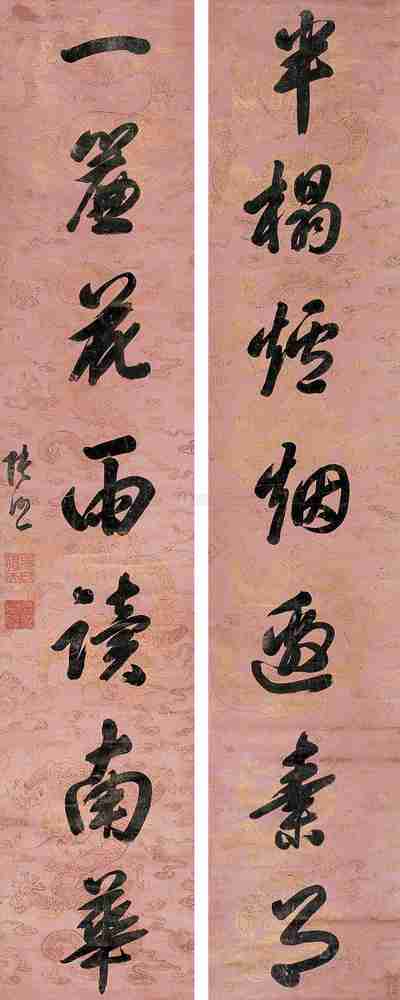 半榻爐烟邀素月
一簾花雨讀南華